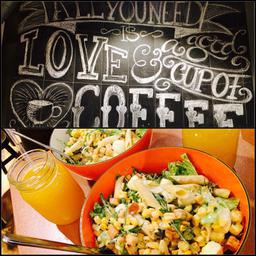 ALL YOU NEED
IS
LOVE & a good
CUP OF
COFFEE